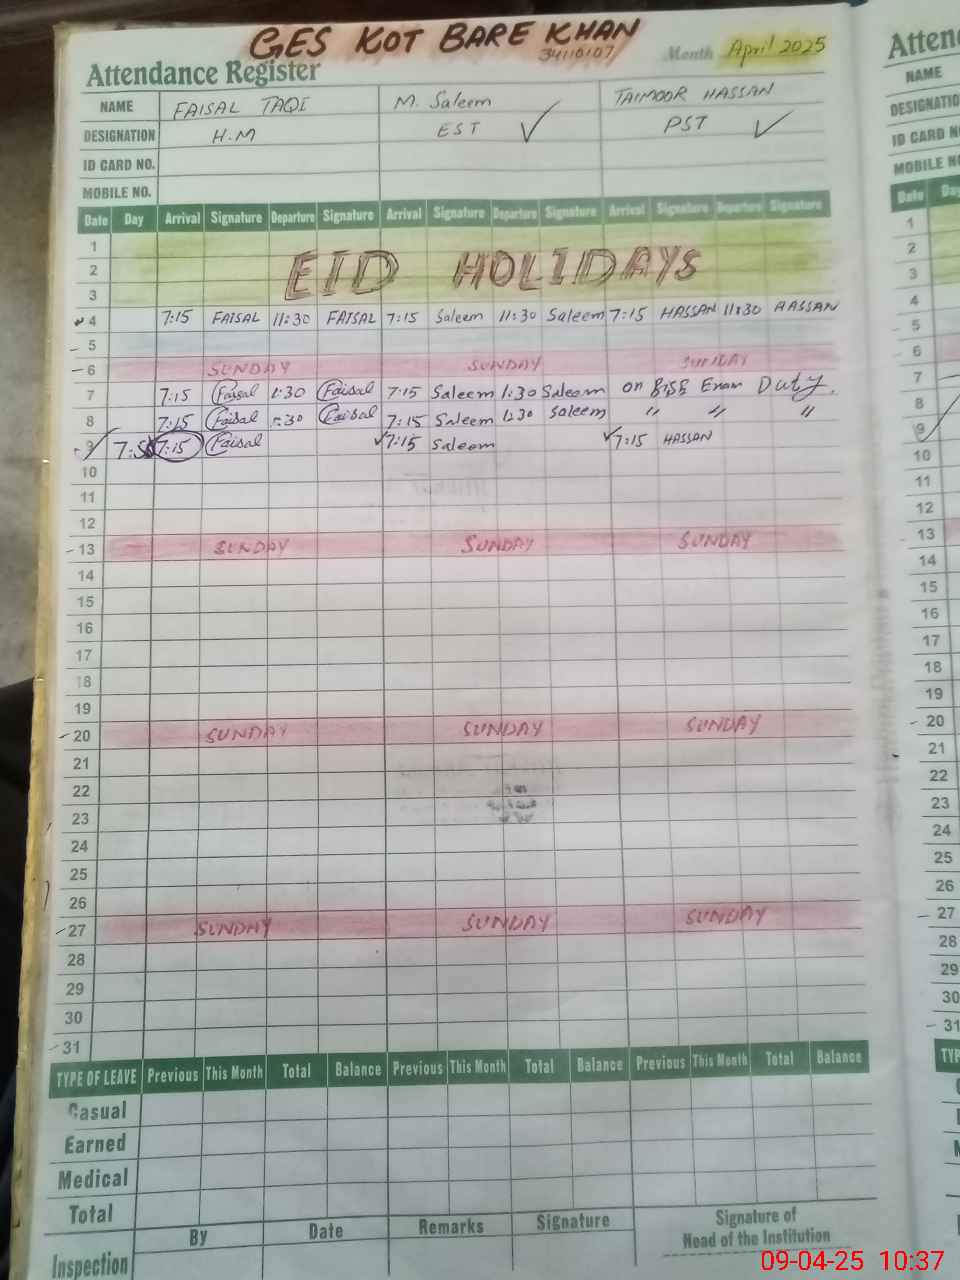 GES KOT BARE KHAN
34110107
Attendance Register Month April 2025
NAME FAISAL TAQI M. Saleem TAIMOOR HASSAN
DESIGNATION H.M EST PST
ID CARD NO.
MOBILE NO.
Date Day Arrival Signature Departure Signature Arrival Signature Departure Signature Arrival Signature Departure Signature
1
2 EID HOLIDAYS
3
4 7:15 FAISAL 11:30 FAISAL 7:15 Saleem 11:30 Saleem 7:15 HASSAN 11:30 HASSAN
5
6 SUNDAY SUNDAY SUNDAY
7 7:15 Faisal 1:30 Faisal 7:15 Saleem 1:30 Saleem on Exam Duty.
8 7:15 Faisal 1:30 Faisal 7:15 Saleem 1:30 Saleem " " "
9 7:15 Faisal 7:15 Saleem 7:15 HASSAN
10
11
12
13 SUNDAY SUNDAY SUNDAY
14
15
16
17
18
19
20 SUNDAY SUNDAY SUNDAY
21
22
23
24
25
26
27 SUNDAY SUNDAY SUNDAY
28
29
30
31
TYPE OF LEAVE Previous This Month Total Balance Previous This Month Total Balance Previous This Month Total Balance
Casual
Earned
Medical
Total
Inspection By Date Remarks Signature Signature of
Head of the Institution
Atten
NAME
DESIGNATIO
ID CARD N
MOBILE NO
Date Day
1
2
3
4
5
6
7
8
9
10
11
12
13
14
15
16
17
18
19
20
21
22
23
24
25
26
27
28
29
30
31
TYP
09-04-25 10:37